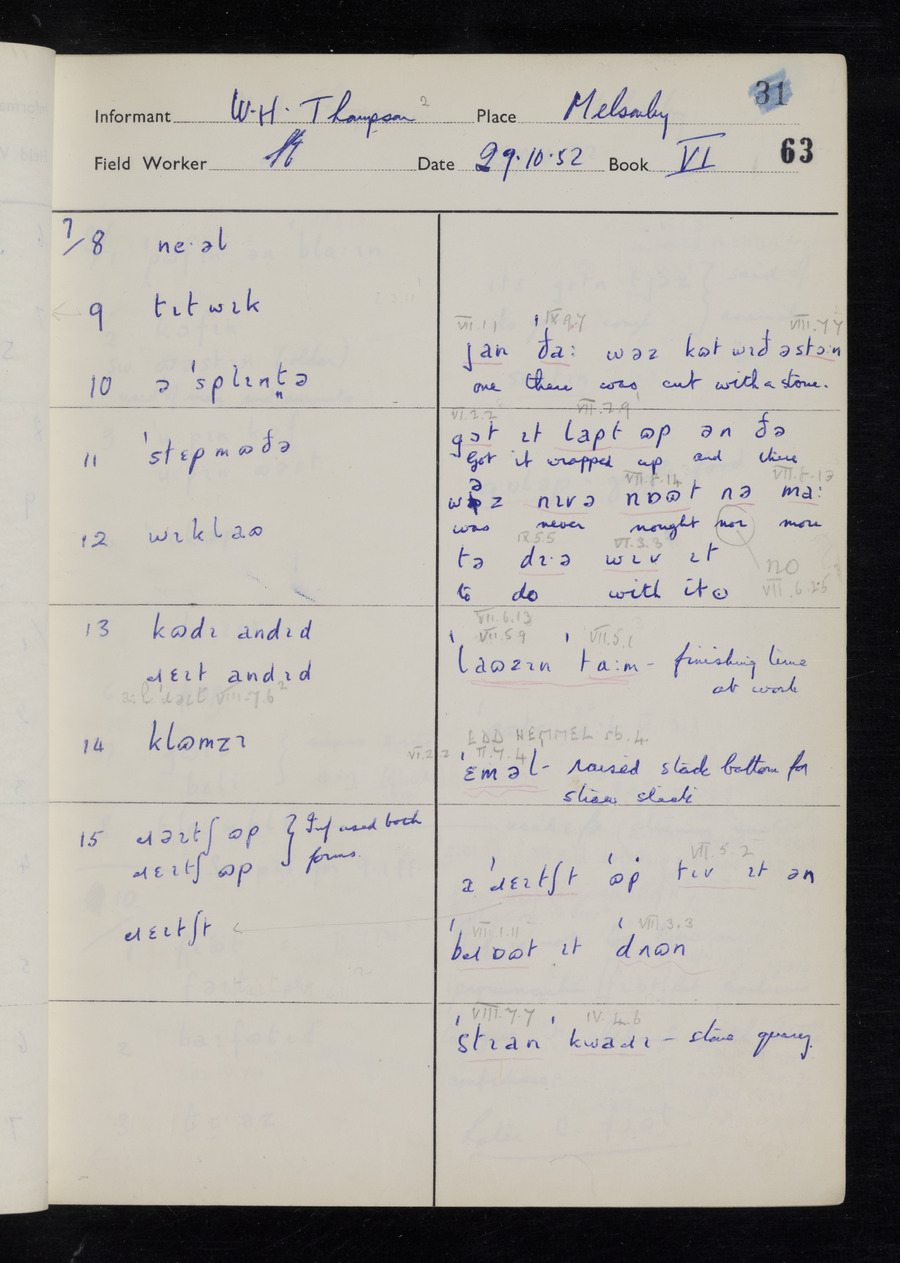 31
Informant W.H. Thompson 2 Place Melsonby
Field Worker Date 29.10.52 Book VI 63
7/8 ne·əl
9 tɪtwɪk
10 ə ˈsplɪntə
n
11 ˈstɛpmɷðə
12 wɪklaɷ
13 kɷdɪ andɪd
ɹɛɪt andɪd
VIII.7.6 2
14 klɷmzɪ
15 ɹəɪtʃ ɷp } Inf used both
ɹɛɪtʃ ɷp forms.
ɹɛɪtʃt
VI.1.1 IX.9.7 VIII.7.7
jan ða: wəz kɷt wɪð ə stə:n
one there was cut with a stone.
VI.2.2 VII.2.9
gət ɪt lapt ɷp ən ðə
Got it wrapped up and there
ə VII.8.14 VII.8.13
wəz nɪvə nɒɷt nə ma:
was never nought nor more
IX.5.5 VI.3.3
tə dɪ·ə wɪv ɪt no
to do with it VII.6.25
VII.6.13
VII.5.9 VII.5.1
ˈlaɷzɪn ˈta:m - finishing time
at work
EDD HEMMEL sb. 4.
VI.2.2 II.7.4
ˈɛməl - raised stack bottom for
straw stack
VII.5.2
a ˈɹɛɪtʃt ˈɷp tɪv ɪt ən
VII.1.11 VII.3.3
ˈbɹɒɷt ɪt ˈdʌɷn
VIII.7.7 IV.4.6
ˈstɪan ˈkwaɹɪ - stone quarry.